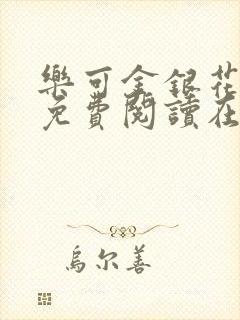 樂可金銀花
免費閱讀在
烏尔善